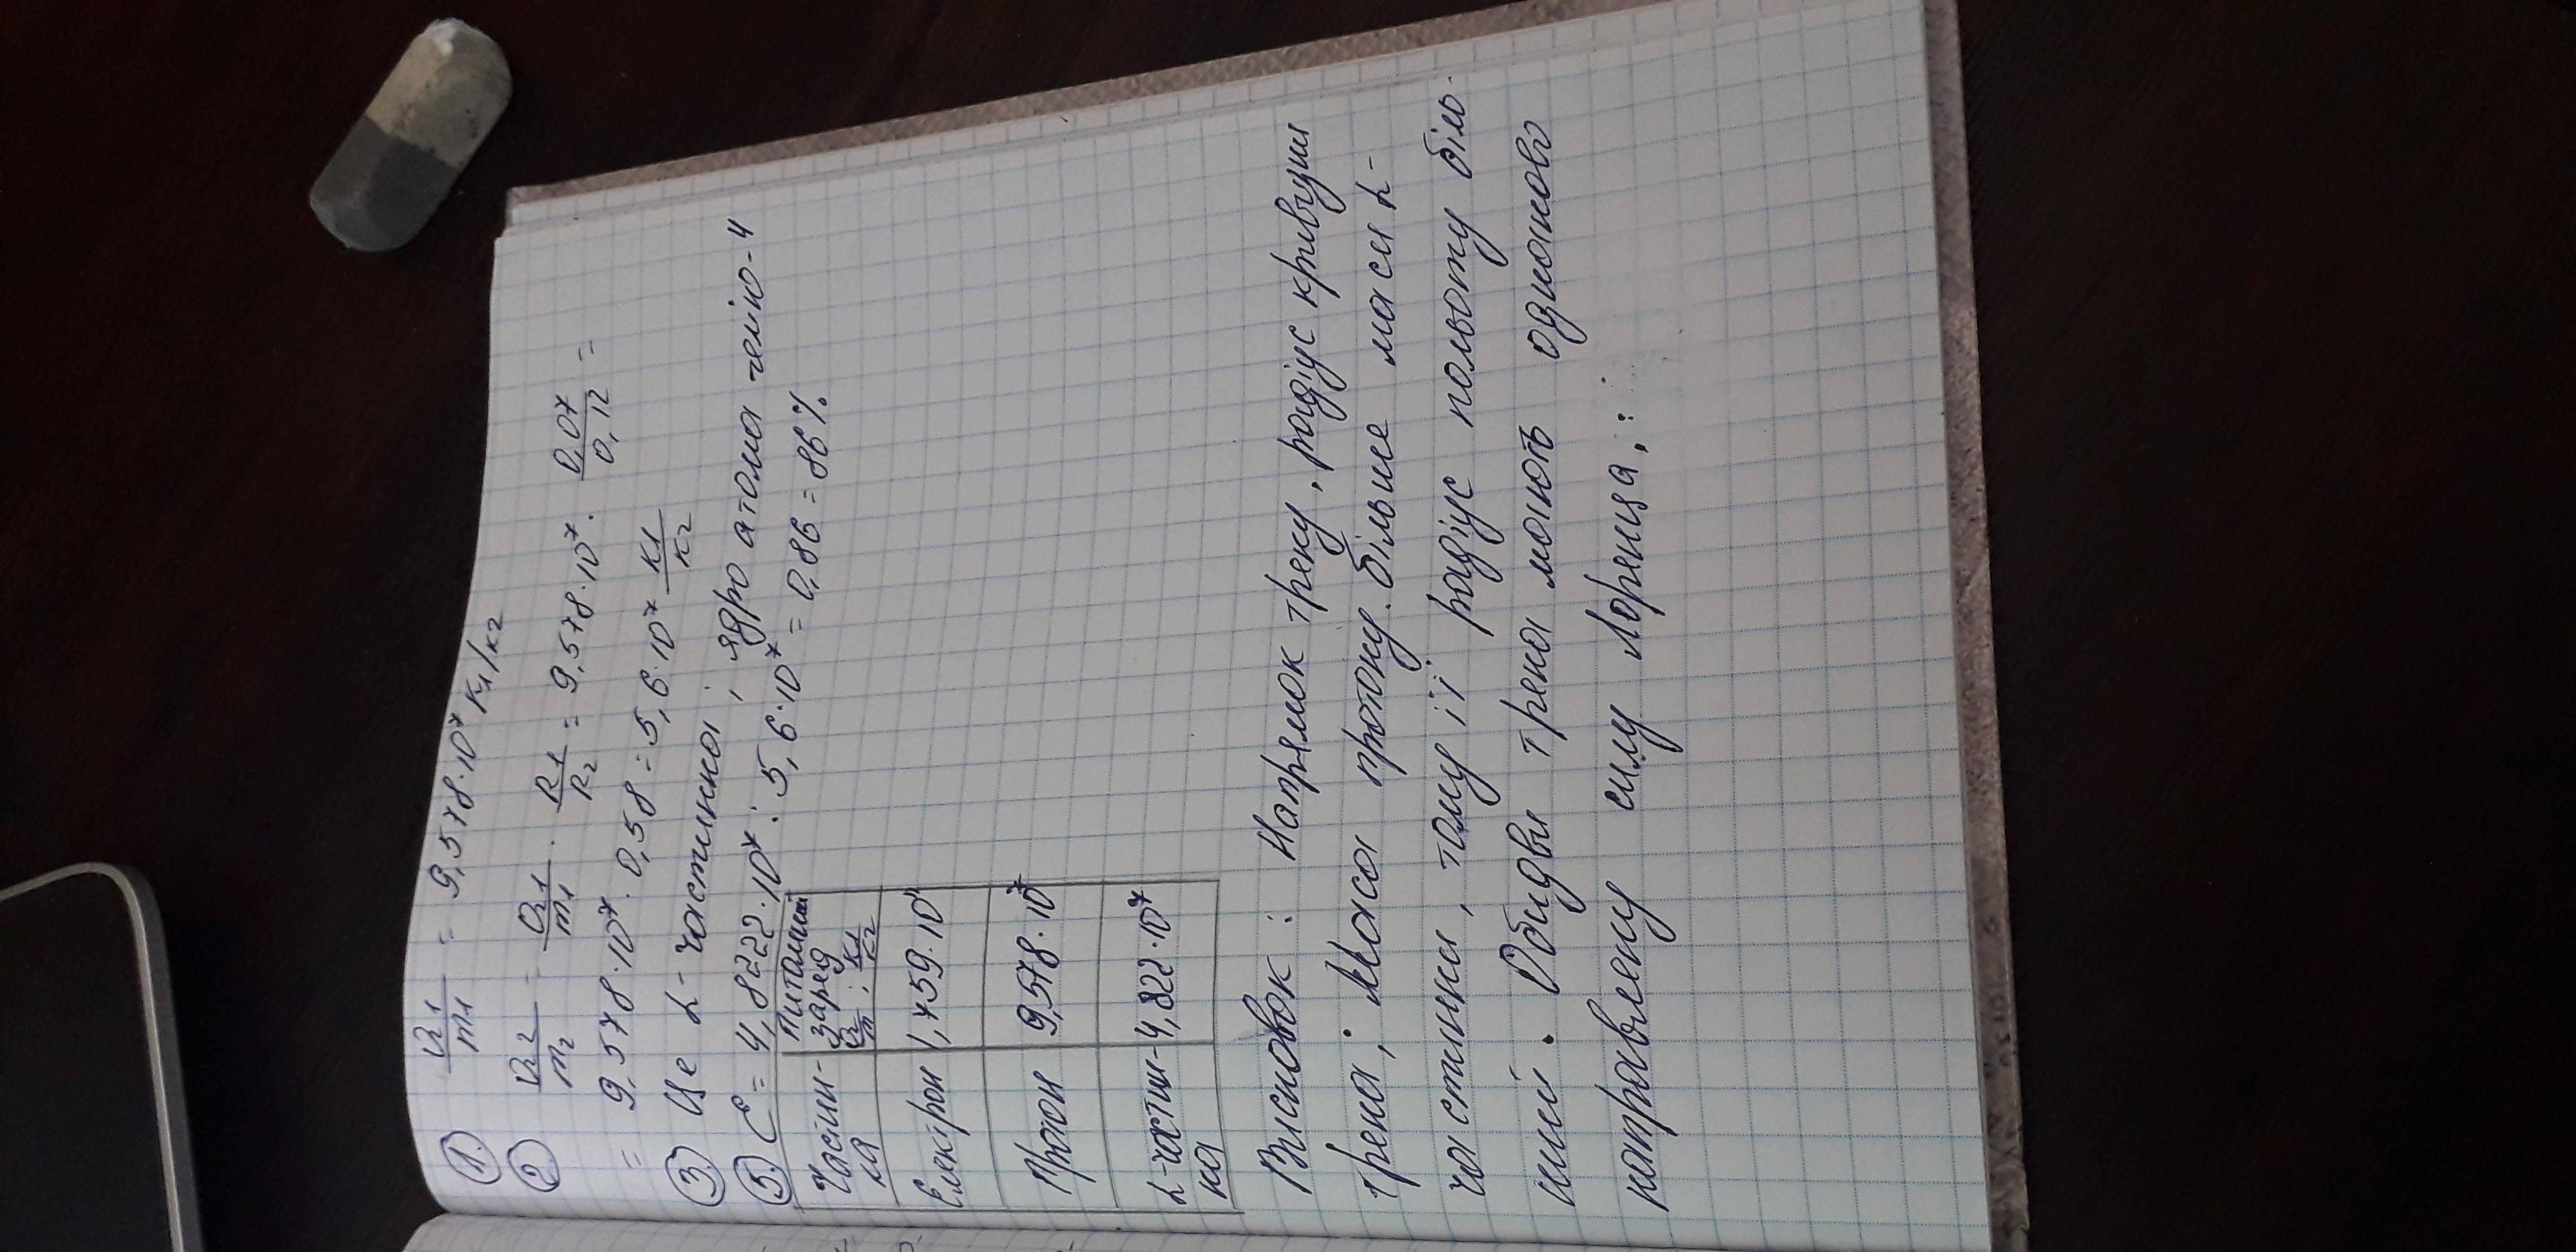 ① q1/m1 = 9,578·10⁷ Кл/кг
② q2/m2 = q1/m1 · R1/R2 = 9,578·10⁷ · 0,07/0,12 =
= 9,578·10⁷ · 0,58 = 5,6·10⁷ Кл/кг
③ Це α-частинка; ядро атома гелію-4
⑤ Ɛ = 4,8222·10⁷ : 5,6·10⁷ = 0,86 = 86%
Частин- Питомий
ка заряд
q/m ; Кл/кг
Електрон 1,759·10¹¹
Протон 9,578·10⁷
α-частин- 4,822·10⁷
ка
Висновок: Напрямок треку, радіус кривузни
трека; Маса протону. більше маси α-
частинки, тому її радіус польоту біль-
ший. Обидви трека мають однаково
направлену силу Лоренца,: